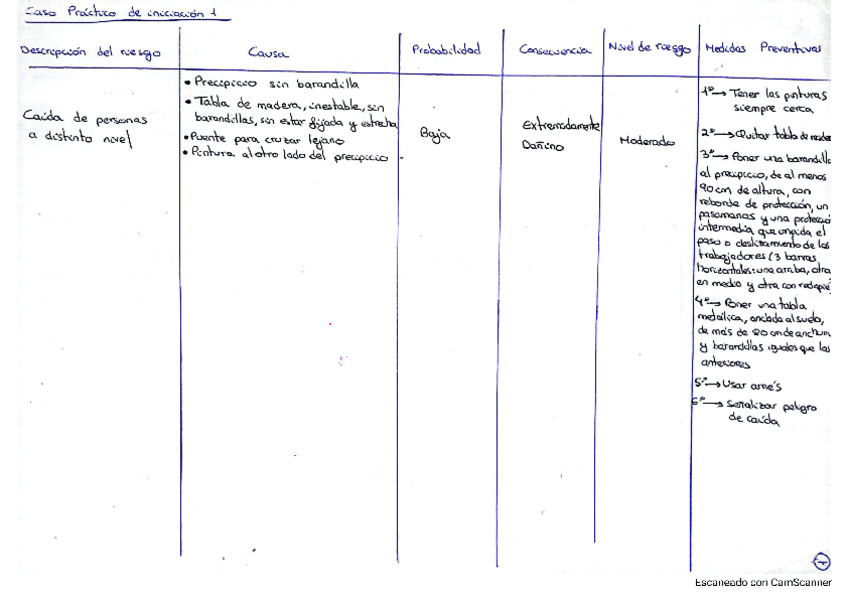 Caso Práctico de iniciación 1
Descripción del riesgo
Causa
Probabilidad
Consecuencia
Nivel de riesgo
Medidas Preventivas
Caída de personas
a distinto nivel
• Precipicio sin barandilla
• Tabla de madera, inestable, sin
barandillas, sin estar fijada y estrecha
• Puente para cruzar lejano
• Pintura al otro lado del precipicio
Baja
Extremadamente
Dañino
Moderado
1º→ Tener las pinturas
siempre cerca
2º→ Quitar tabla de madera
3º→ Poner una barandilla
al precipicio, de al menos
90 cm de altura, con
reborde de protección, un
pasamanos y una protecció
intermedia que impida el
paso o deslizamiento de los
trabajadores (3 barras
horizontales: una arriba, otra
en medio y otra con rodapié
4º→ Poner una tabla
metálica, anclada al suelo,
de más de cm de anchura
y barandillas iguales que las
anteriores
5º→ Usar arnés
6º→ Señalizar peligro
de caída
1
Escaneado con CamScanner